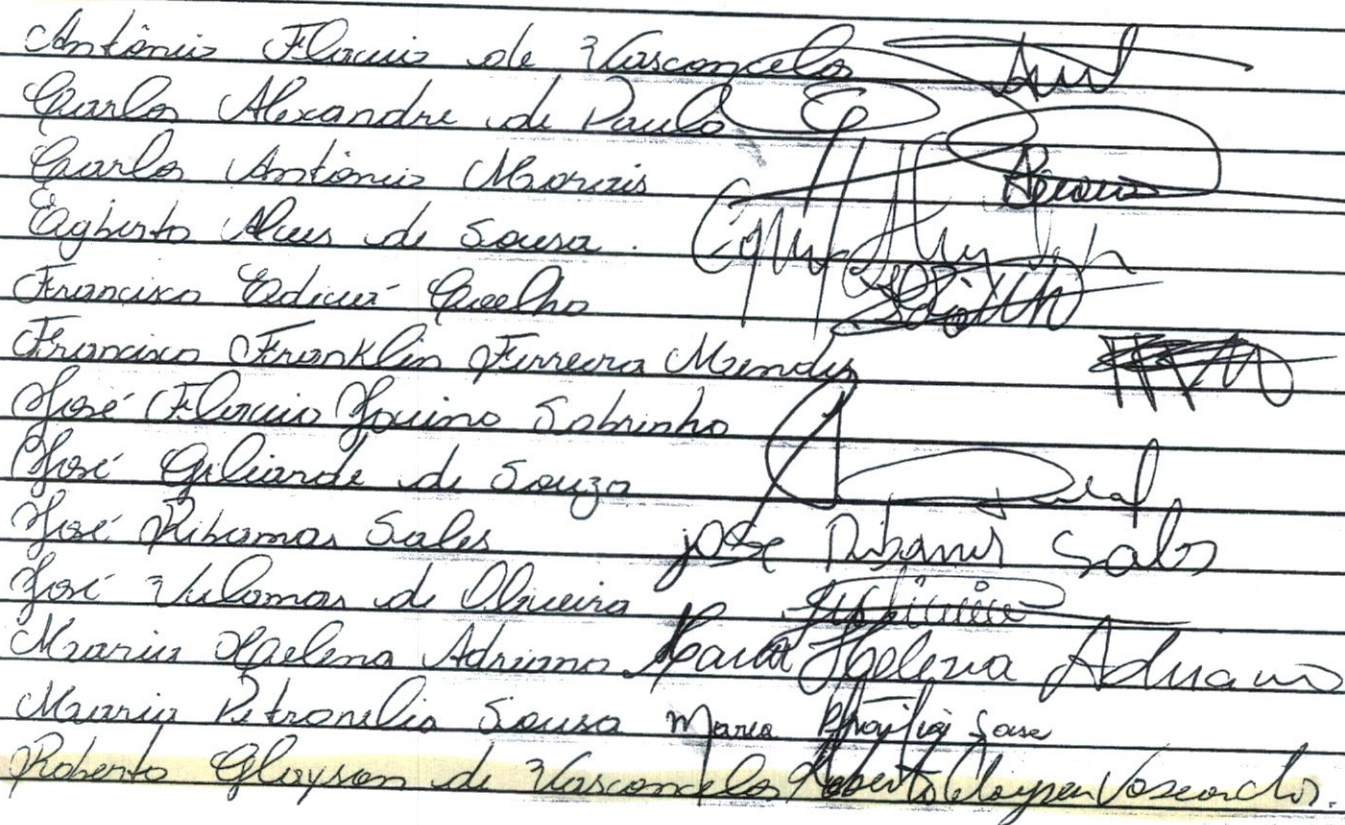 Antônio Flavio de Vasconcelos
Carlos Alexandre de Paulo
Carlos Antônio Morais Morais
Egberto Alves de Sousa.
Francisco Edicué Coelho
Francisco Franklin Ferreira Mendes
José Flavio Jovino Sobrinho
José Giliarde de Souza
José Ribamar Sales jose Ribamar Sales
José Vilamar de Oliveira
Maria Helena Adriano Maria Helena Adriano
Maria Petronilia Sousa Maria
Roberto Glayson de Vasconcelos Roberto Glayson Vasconcelos.